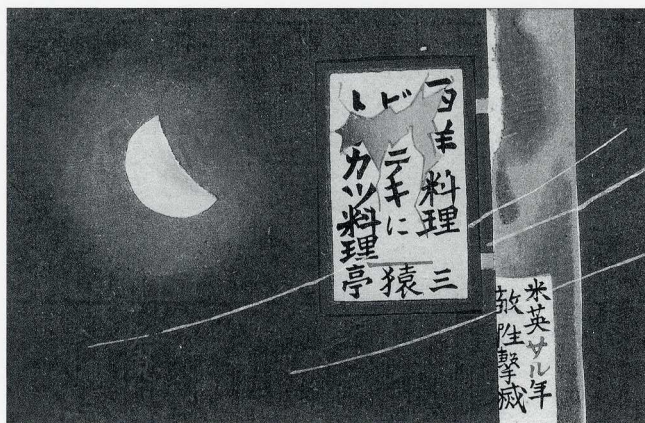 西洋料理
ビ テキに
ト カツ料理
三猿亭
米英サル年
敵性撃滅